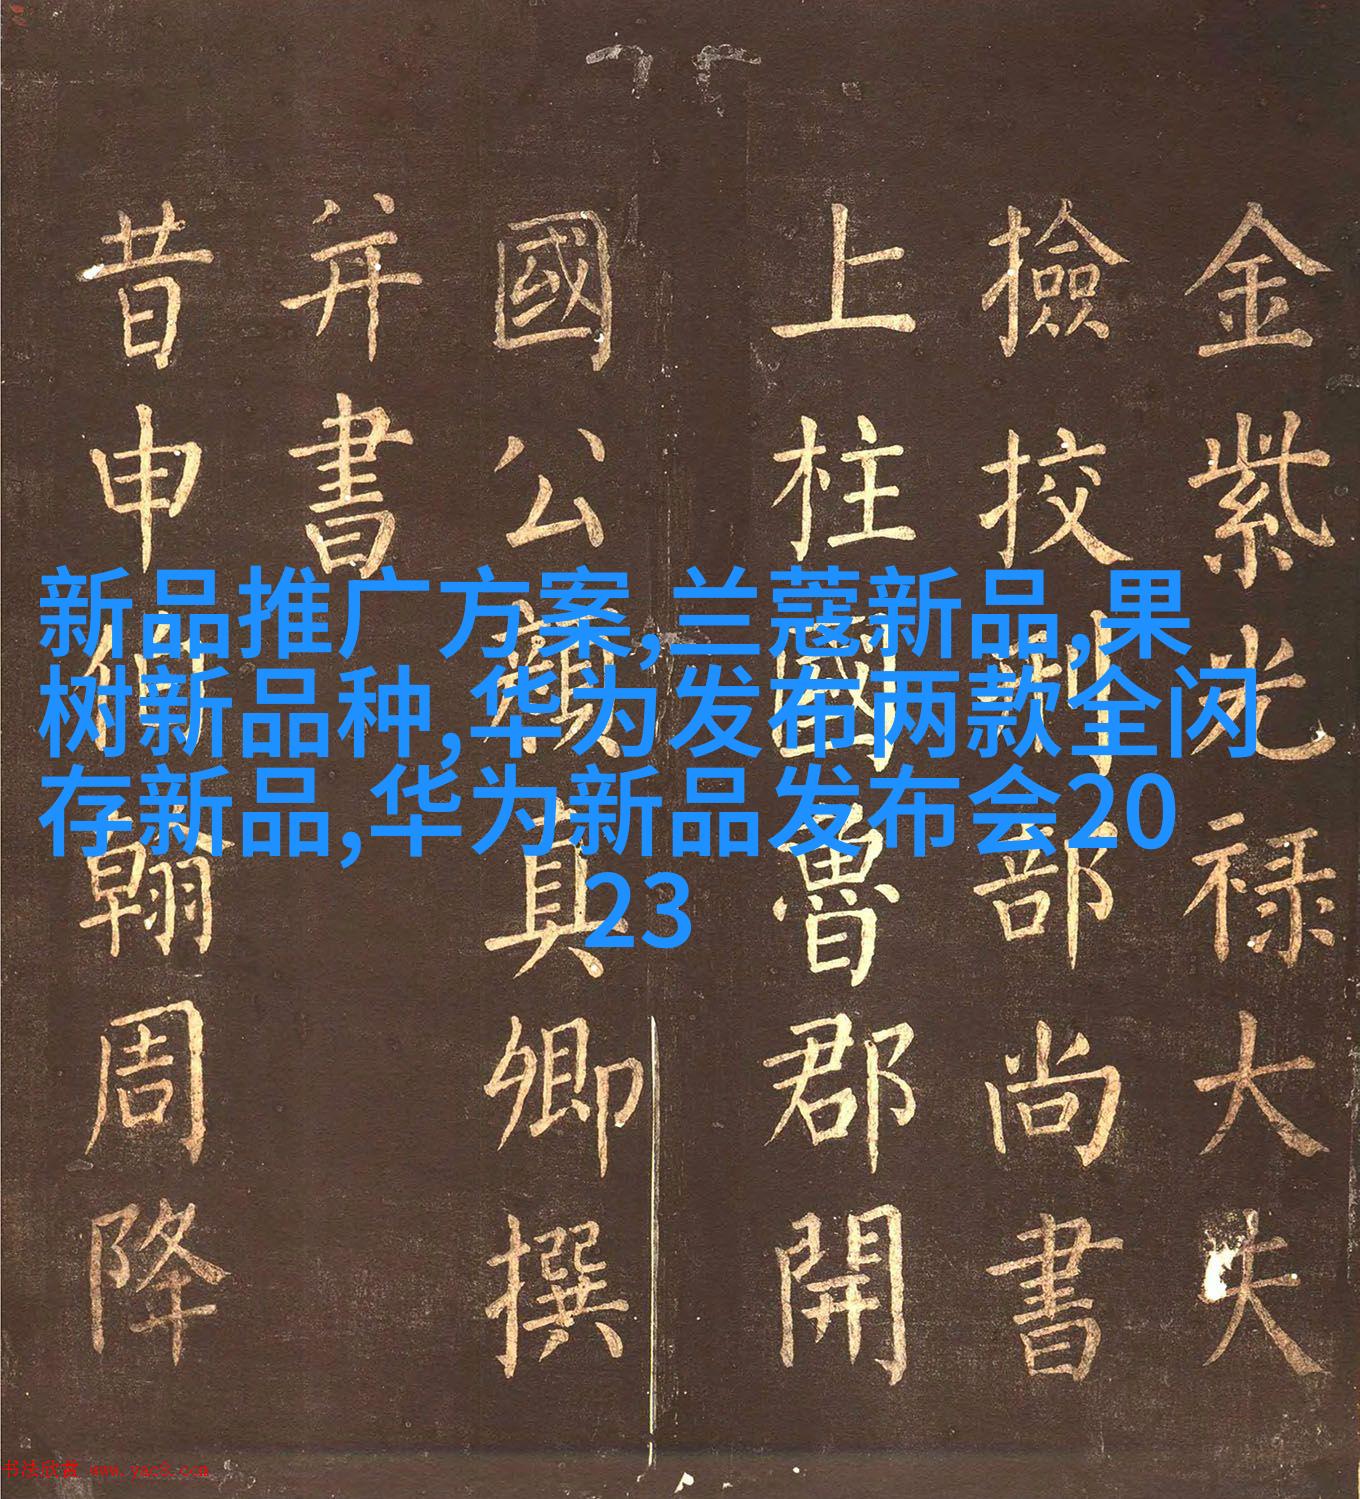 金紫光禄大夫
撿挍刑部尚書
上柱國魯郡開
國公顔真卿撰
并書
昔申伯翰周降
新品推广方案,兰蔻新品,果
树新品种,华为发布两款全闪
存新品,华为新品发布会20
23
书法欣赏 www.yac8.com